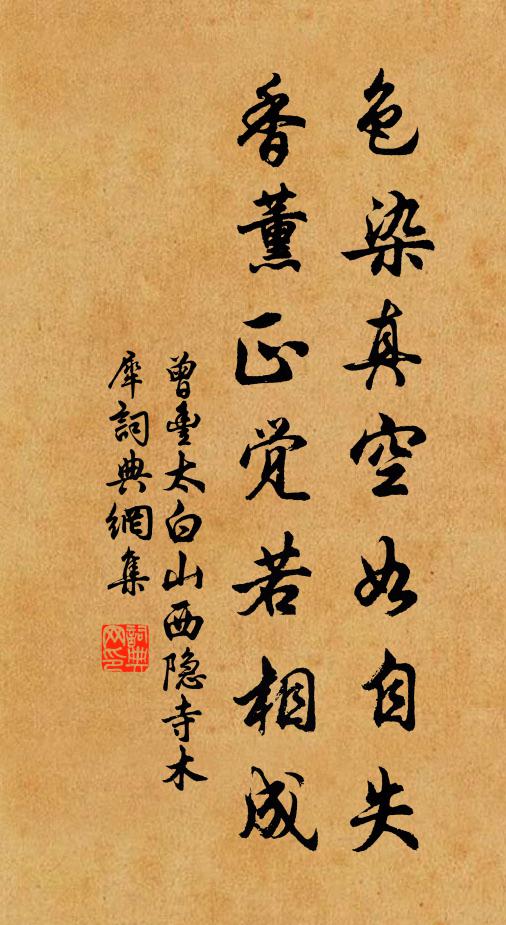 色染真空如自失
香薰正觉若相成
曾丰太白山西隐寺木
犀詞典網集
詞典
网印